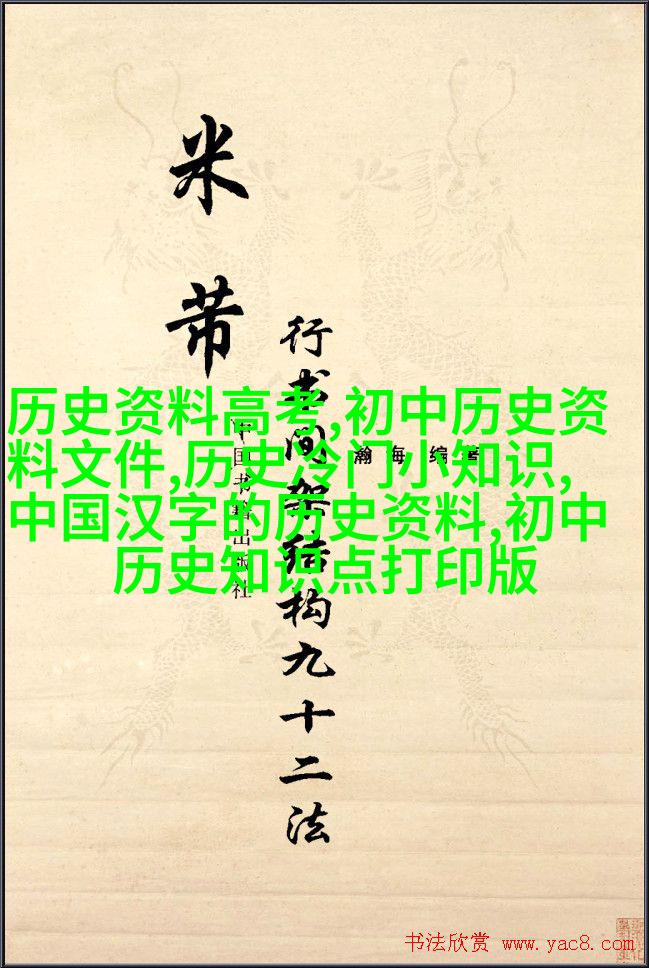 米芾
行书间架结构九十二法
瀚海 编著
中国书籍出版社
历史资料高考,初中历史资
料文件,历史冷门小知识,
中国汉字的历史资料,初中
历史知识点打印版
书法欣赏 www.yac8.com